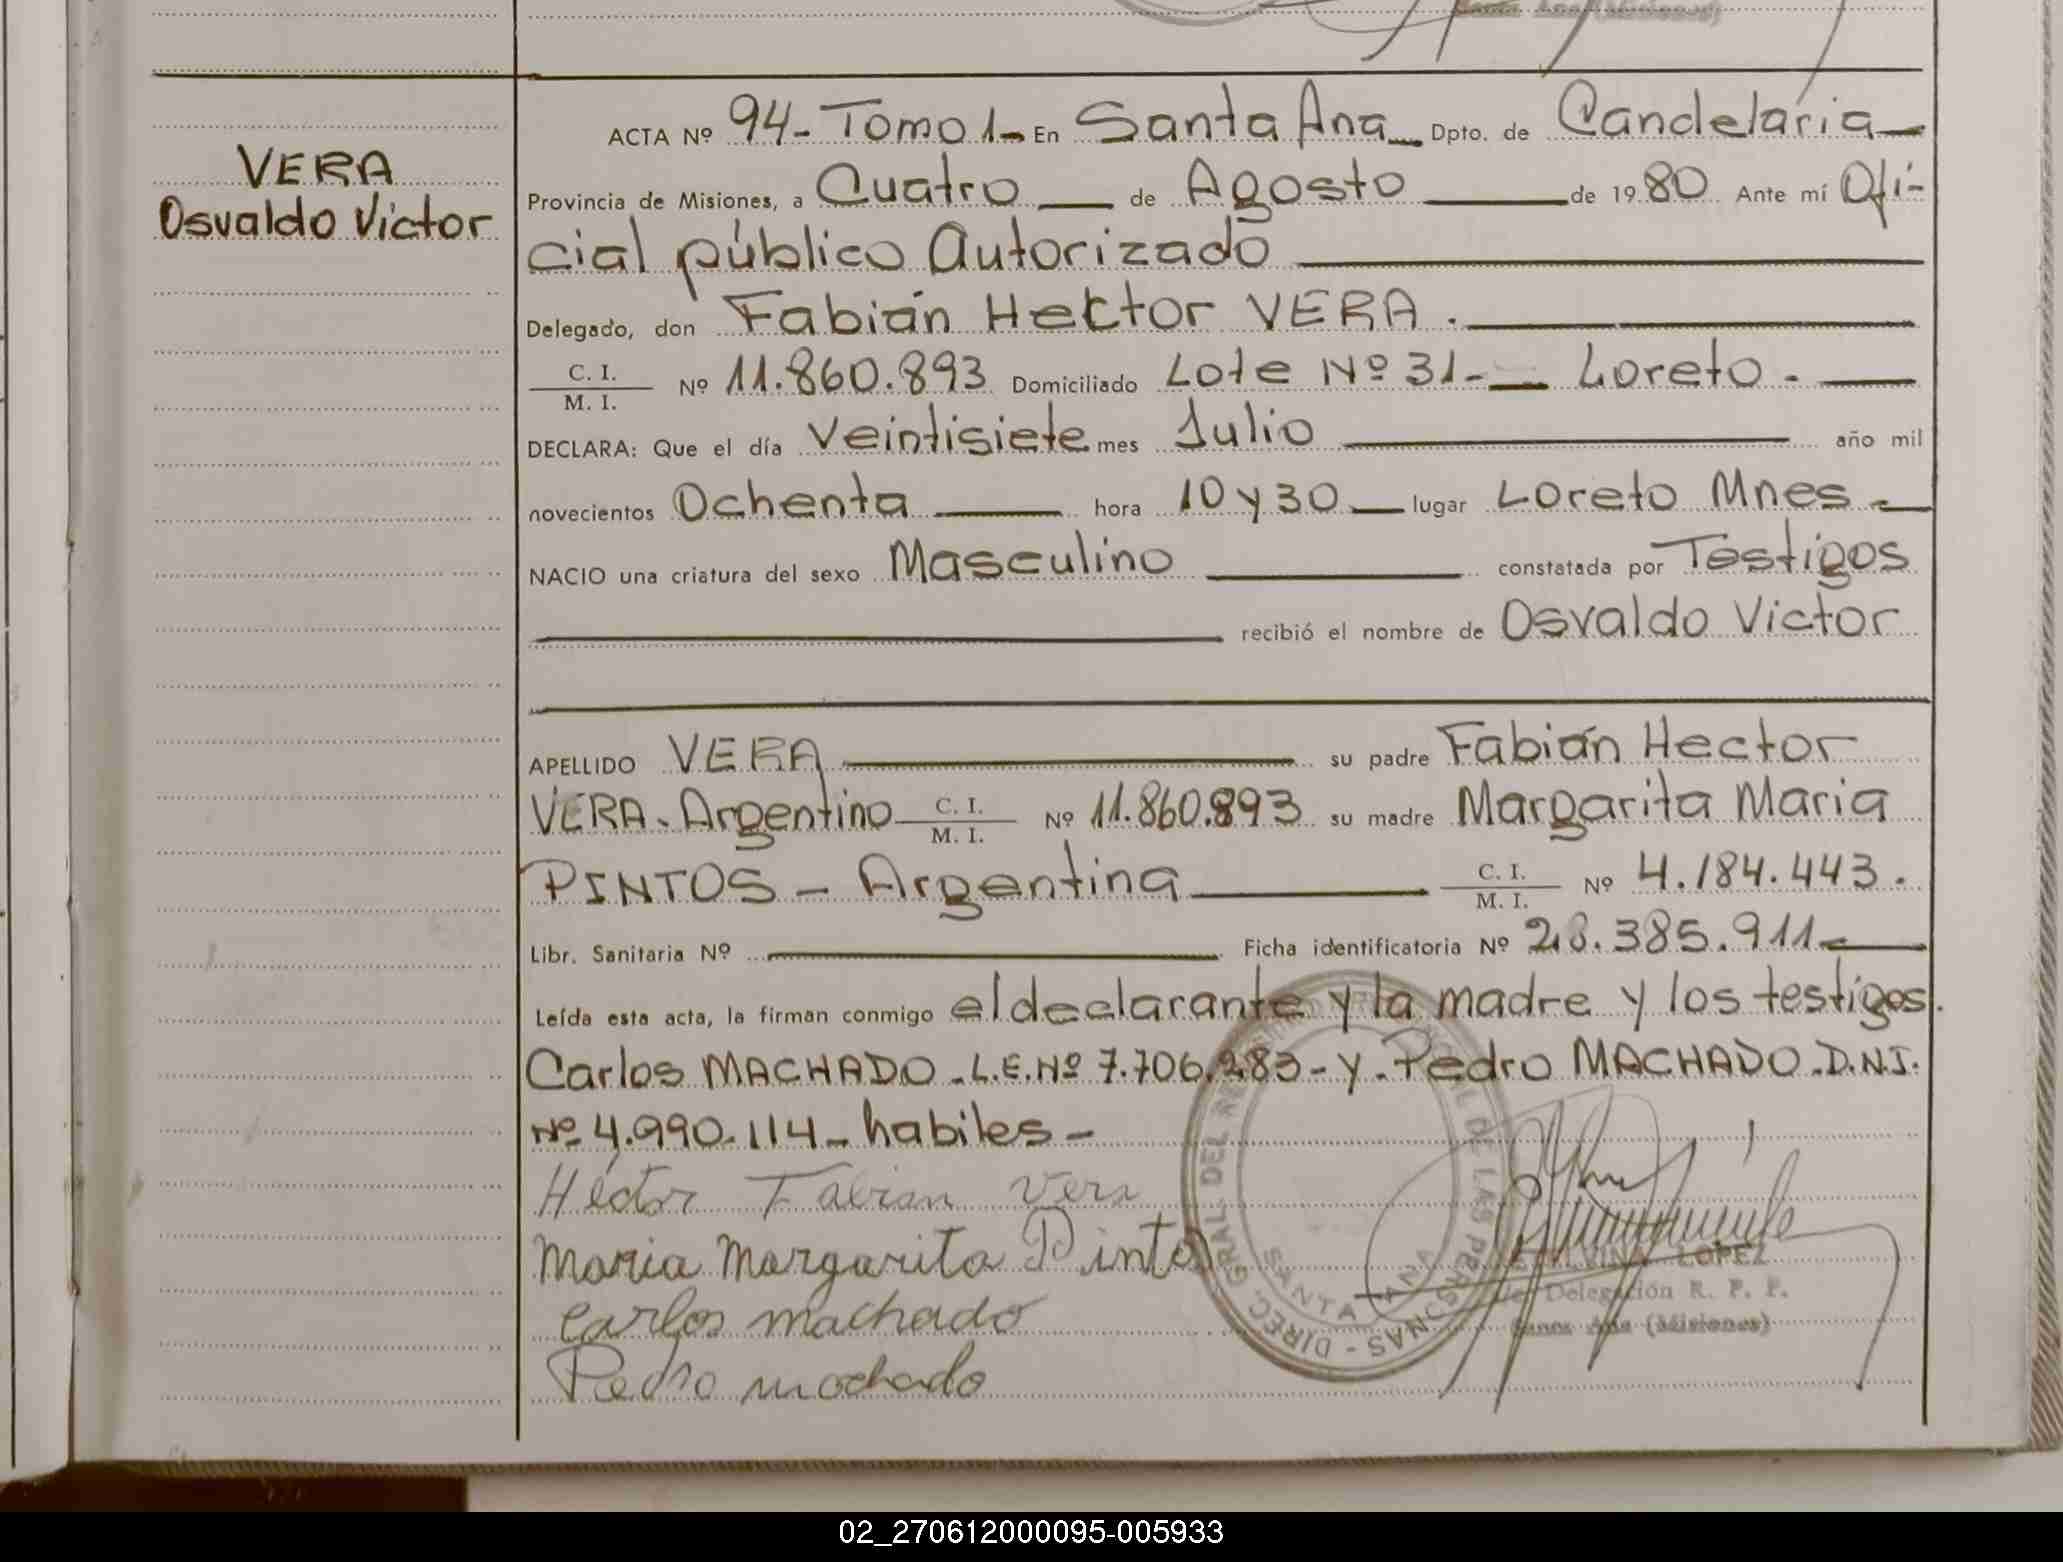 VERA
Osvaldo Victor
ACTA Nº 94-Tomo 1- En Santa Ana Dpto. de Candelaria
Provincia de Misiones, a Cuatro de Agosto de 1980 Ante mí Ofi-
cial público Autorizado
Delegado, don Fabián Hector VERA.
C. I.
M. I.
Nº 11.860.893 Domiciliado Lote Nº 31- Loreto.
DECLARA: Que el día Veintisiete mes Julio año mil
novecientos Ochenta hora 10 y 30 lugar Loreto Mnes-
NACIO una criatura del sexo Masculino constatada por Testigos
recibió el nombre de Osvaldo Victor
APELLIDO VERA su padre Fabián Hector
VERA. Argentino C. I. M. I. Nº 11.860.893 su madre Margarita Maria
PINTOS - Argentina C. I. M. I. Nº 4.184.443.
Libr. Sanitaria Nº Ficha identificatoria Nº 28.385.911-
Leída esta acta, la firman conmigo el declarante y la madre y los testigos.
Carlos MACHADO.L.E.Nº 7.706.283-y.Pedro MACHADO.D.N.I.
Nº 4.990.114-habiles-
Héctor Fabian Vera
Maria Margarita Pinto
Carlos machado
Pedro machado
DIREC. GRAL DEL REGISTRO DE LAS PERSONAS -
SANTA ANA
LOPEZ
Delegación R. P. P.
Santa Ana (Misiones)
02_270612000095-005933